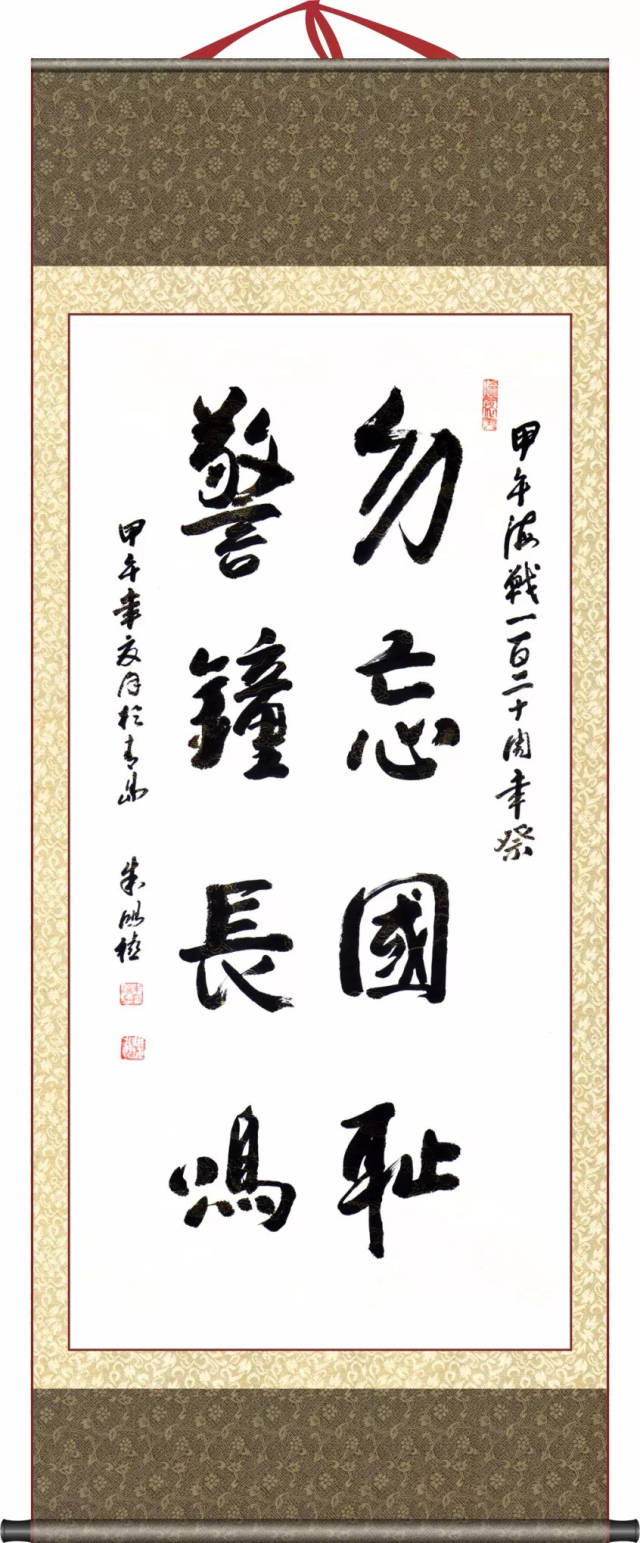 甲午海戰一百二十周年祭
勿忘國耻
警鐘長鳴
甲午年夏月於青島